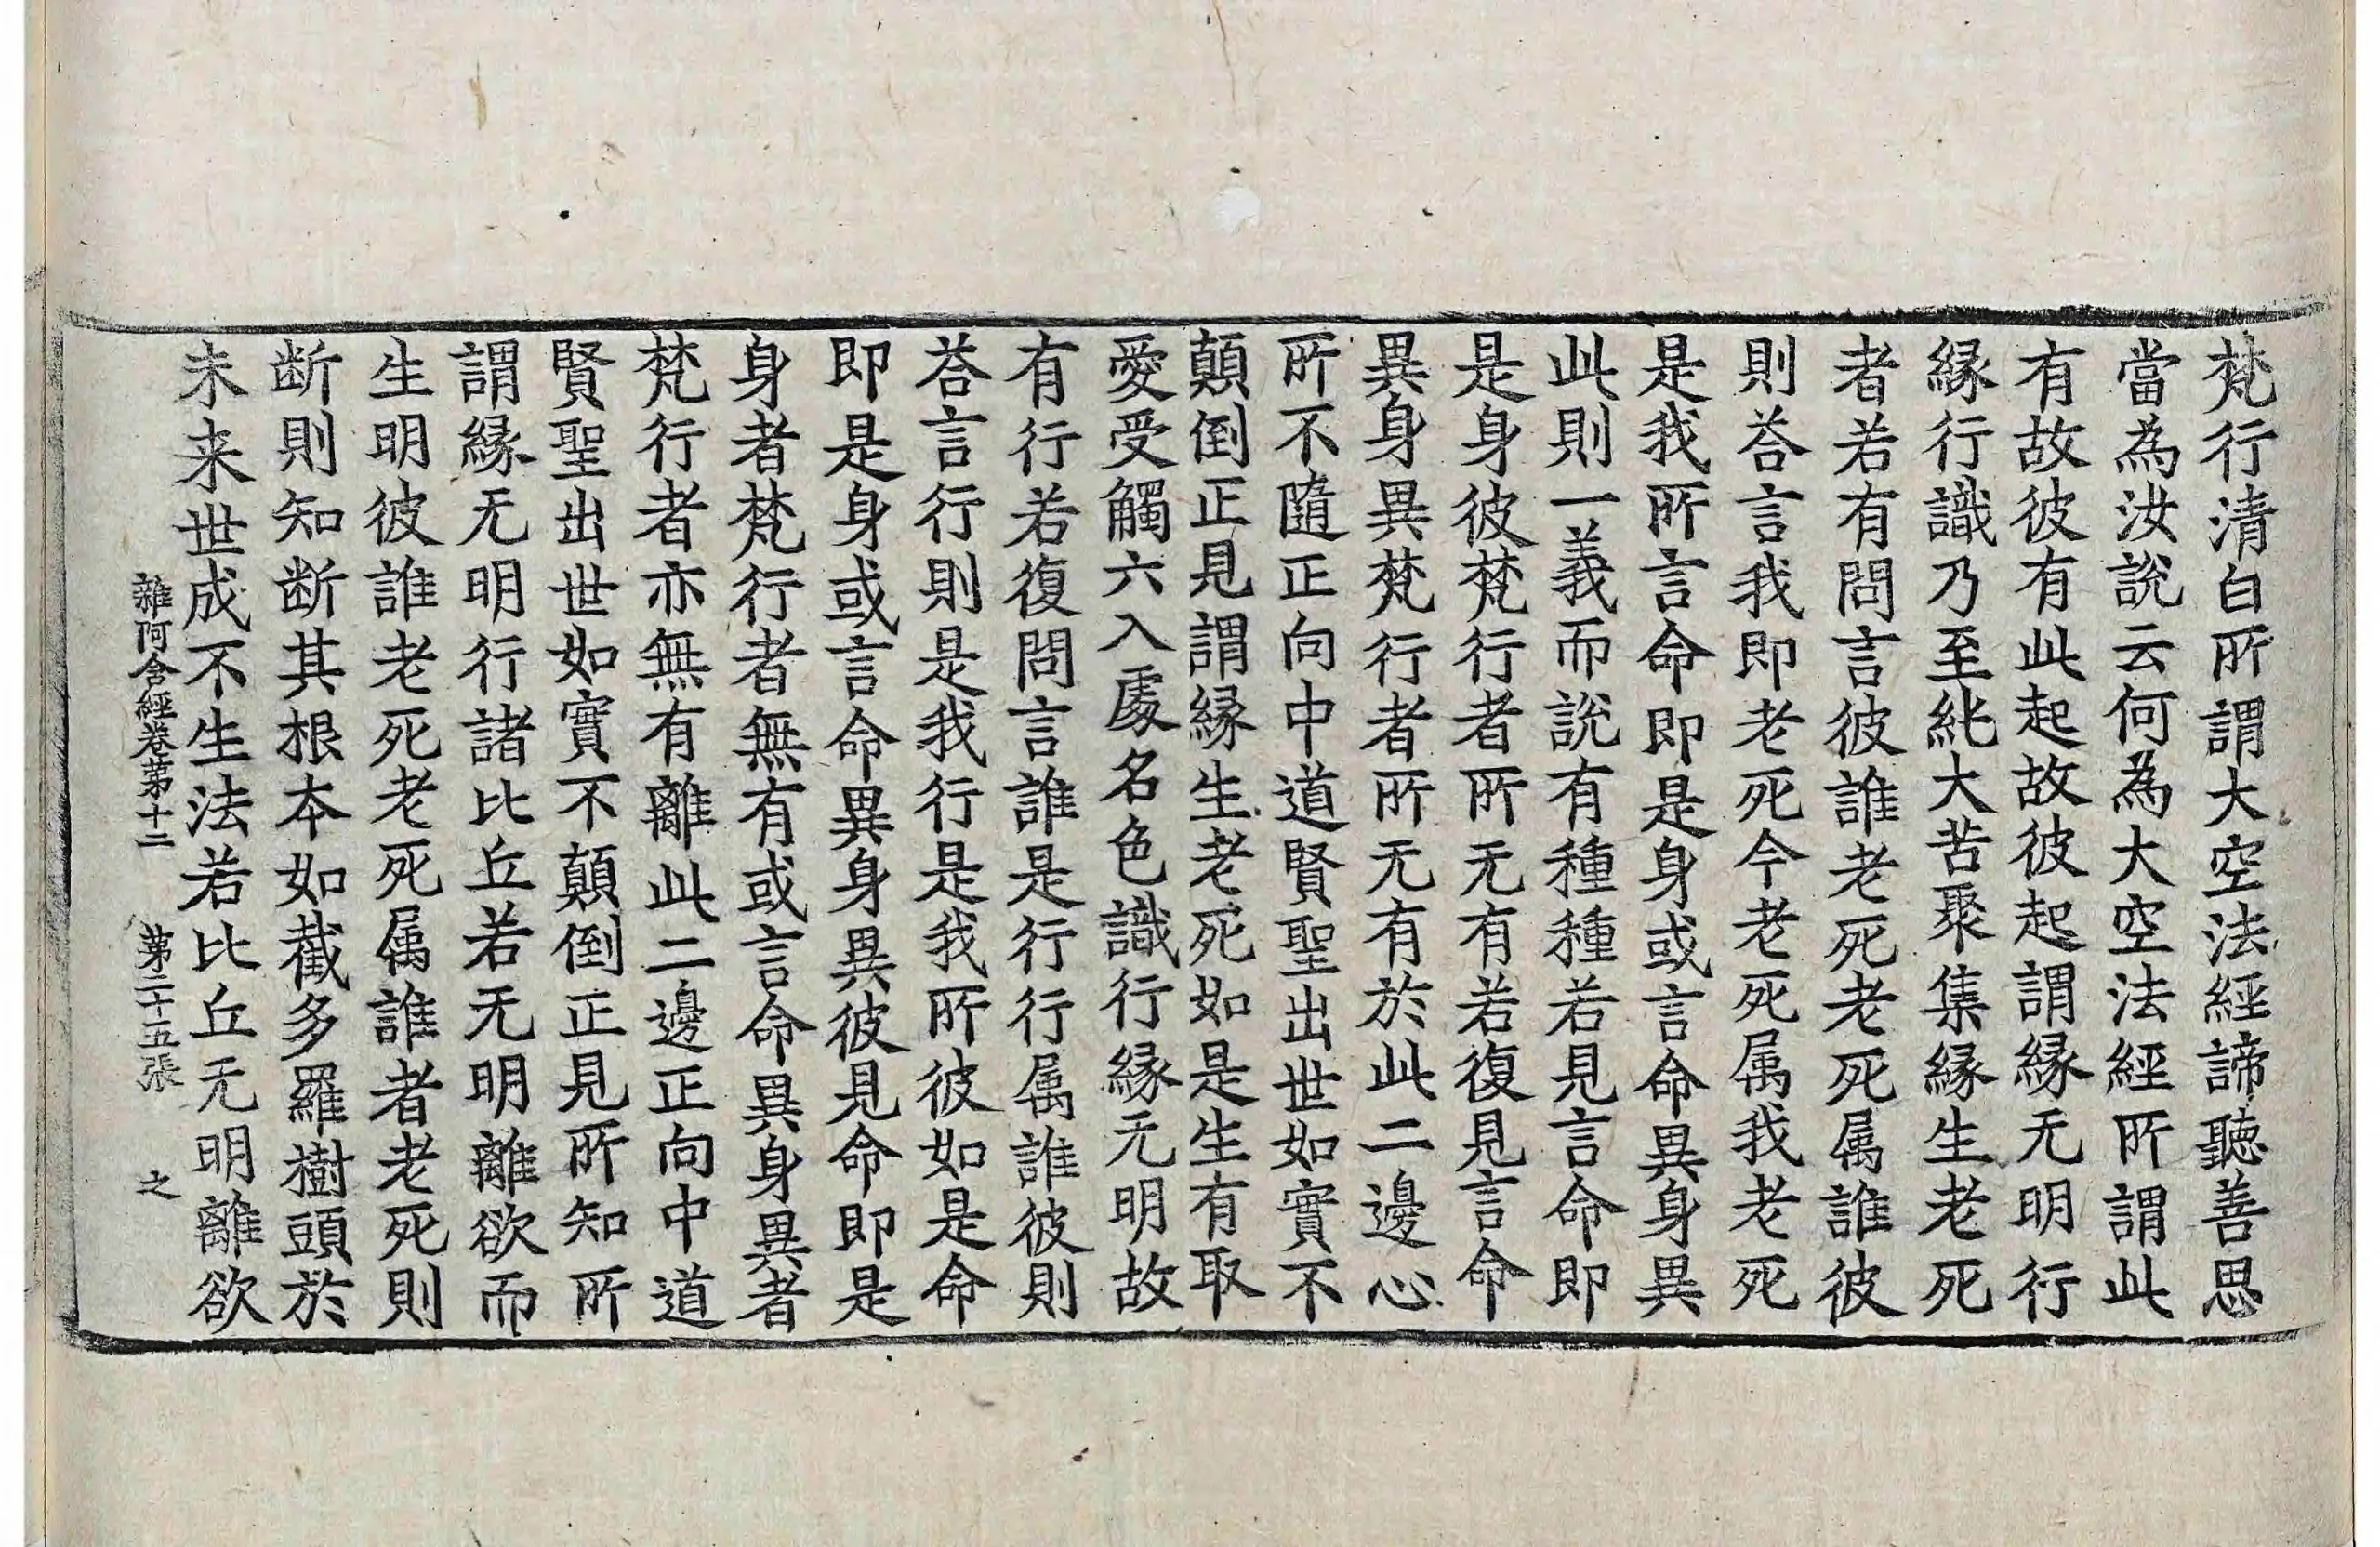 梵行清白所謂大空法經諦聽善思
當為汝說云何為大空法經所謂此
有故彼有此起故彼起謂緣无明行
緣行識乃至純大苦聚集緣生老死
者若有問言彼誰老死老死属誰彼
則荅言我即老死今老死属我老死
是我所言命即是身或言命異身異
此則一義而說有種種若見言命即
是身彼梵行者所无有若復見言命
異身異梵行者所无有於此二邊心
所不隨正向中道賢聖出世如實不
顛倒正見謂緣生老死如是生有取
愛受觸六入處名色識行緣无明故
有行若復問言誰是行行属誰彼則
荅言行則是我行是我所彼如是命
即是身或言命異身異彼見命即是
身者梵行者無有或言命異身異者
梵行者亦無有離此二邊正向中道
賢聖出世如實不顛倒正見所知所
謂緣无明行諸比丘若无明離欲而
生明彼誰老死老死属誰者老死則
断則知断其根本如截多羅樹頭於
未来世成不生法若比丘无明離欲
雜阿含經卷第十二 第二十五張 之